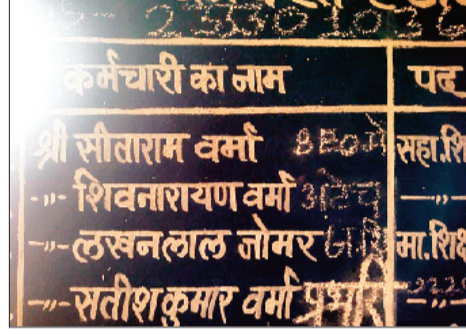 23300103
कर्मचारी का नाम पद
श्री सीताराम वर्मा BEO.में सहा.शि
-"- शिवनारायण वर्मा अटैच -"-
-"- लखनलाल जोमर मा.शिक्ष
-"- सतीश कुमार वर्मा प्रभारी -"-